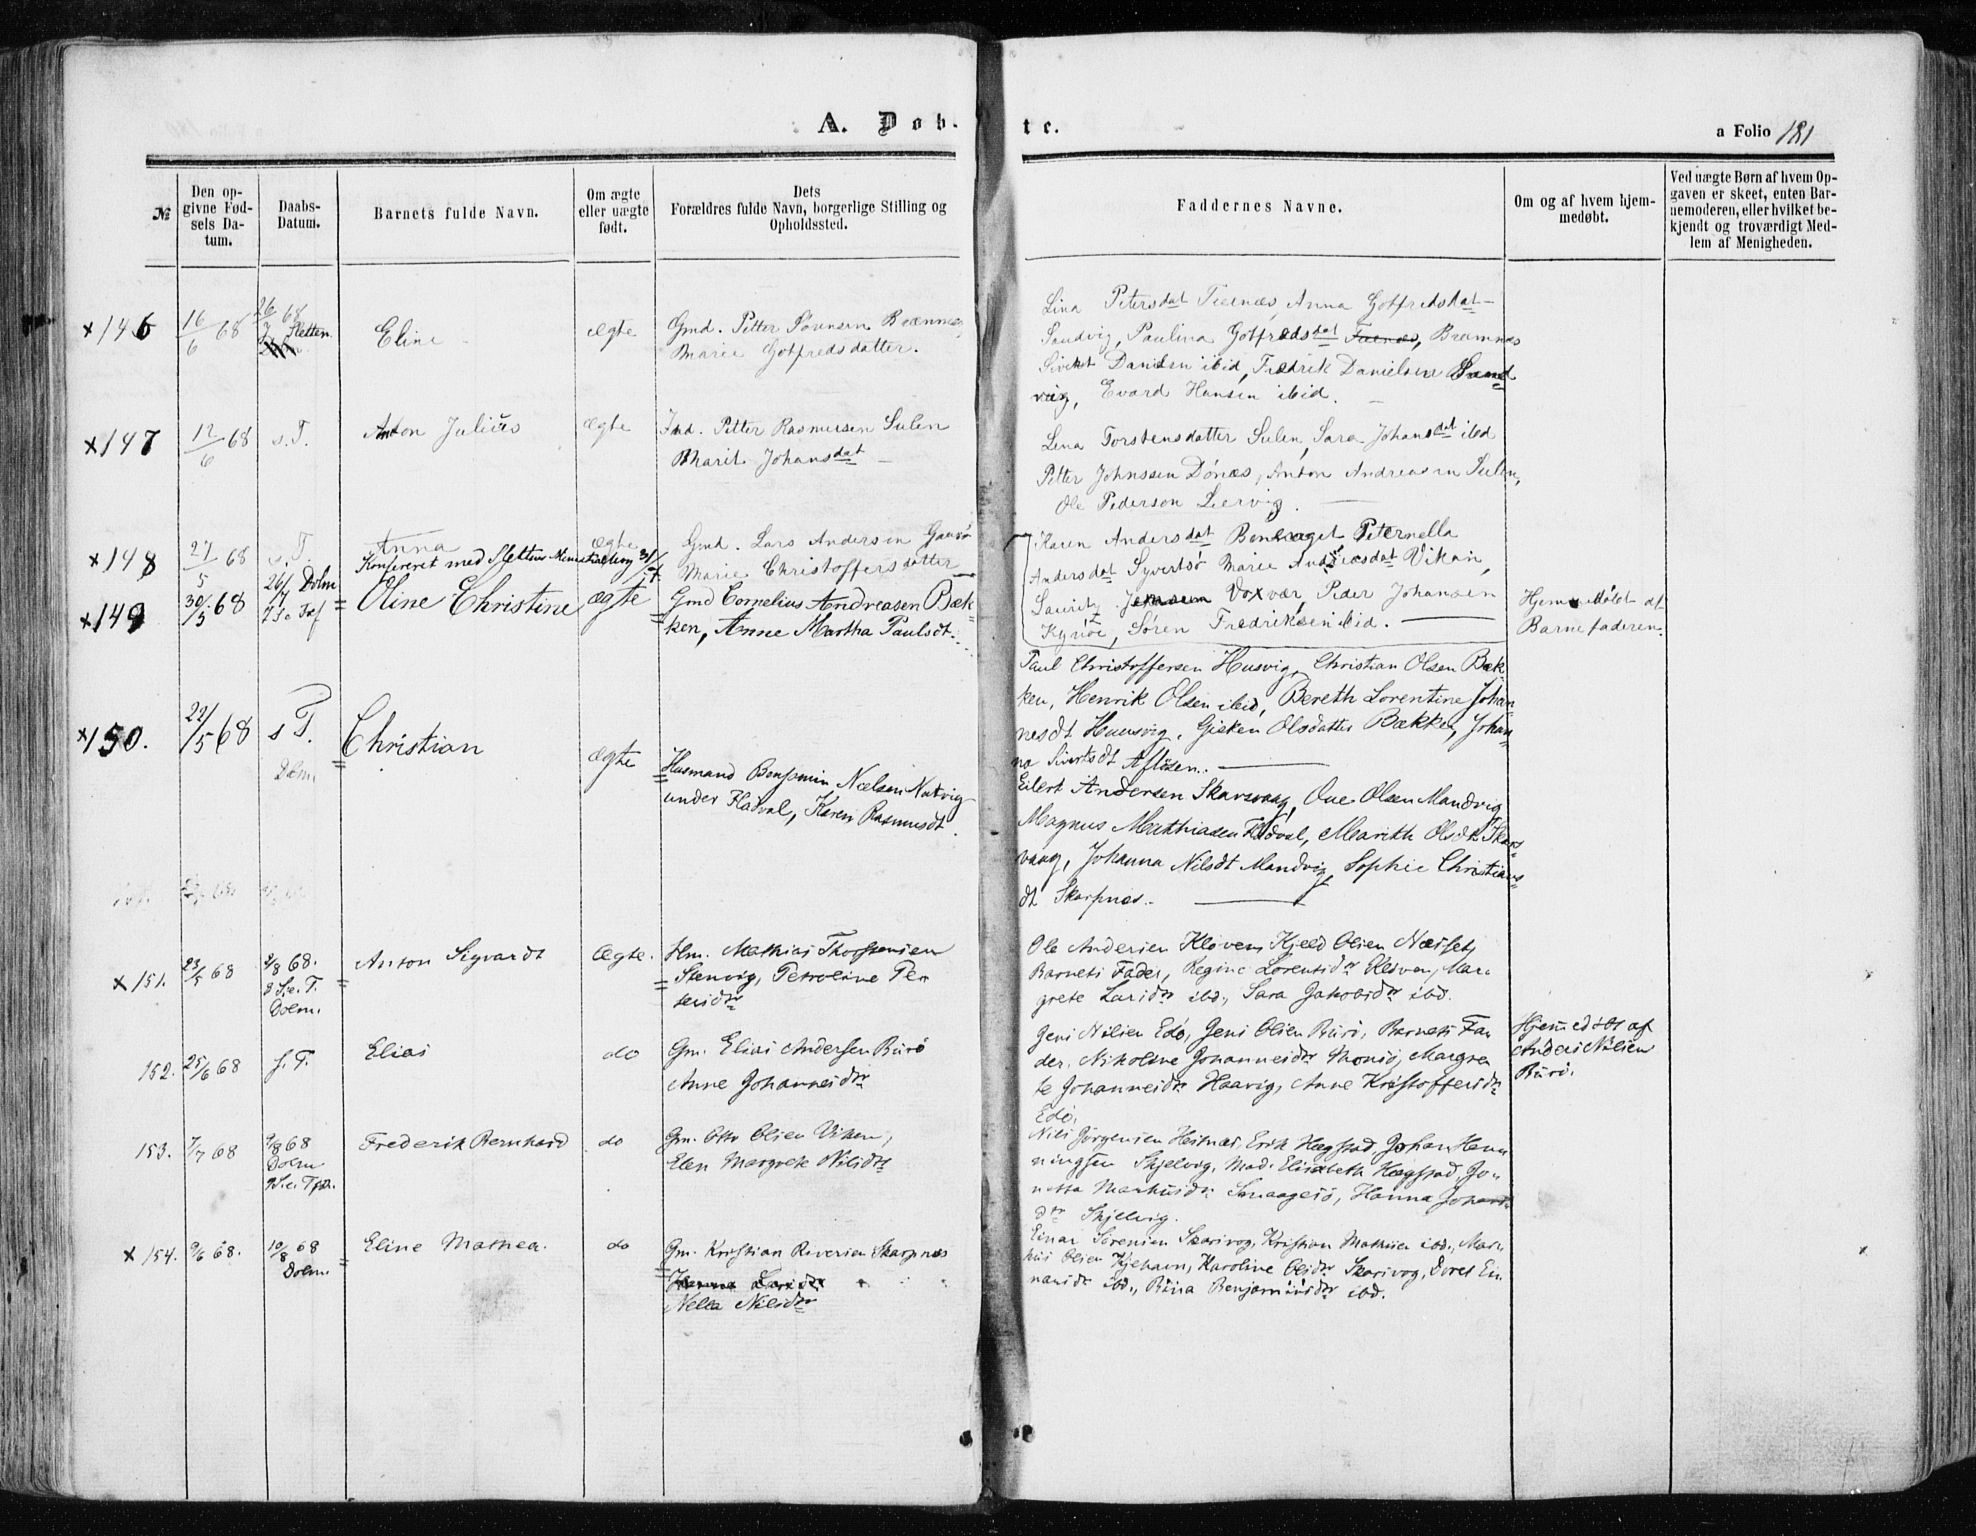 A. Døb.
te.
a Folio 181
№
Den op-
givne Fød-
sels Da-
tum.
Daabs-
Datum.
Barnets fulde Navn.
Om ægte
eller uægte
født.
Dets
Forældres fulde Navn, borgerlige Stilling og
Opholdssted.
Faddernes Navne.
Om og af hvem hjem-
medøbt.
Ved uægte Børn af hvem Op-
gaven er skeet, enten Bar-
nemoderen, eller hvilket be-
kjendt og troværdigt Med-
lem af Menigheden.
x146
16/6 68
26/7 68
Sletten
Eline
ægte
Gmd. Petter Sørensen Brænnes
Marie Gotfredsdatter.
Lina Petersdat Tiernæs, Anna Gotfredsdat
Sandvig, Paulina Gotfredsdat Bramnæs
Sivert Danielsen ibid, Fredrik Danielsen Sand
vig, Evard Hansen ibid.
x147
12/6 68
s. T.
Anton Julius
ægte
Ind. Petter Rasmussen Sulen
Marit Johansdat
Lena Torstensdatter Sulen, Sara Johansdat ibid
Petter Johnssen Dönæs, Anton Andreasen Sulen,
Ole Pederson Lervig.
x148
27/5 68
s. T.
Anna
ægte
Konfereret med Slettens Ministerialbog 31/7
Gmd. Lars Andersen Gaasø
Marie Christoffersdatter
Karen Andersdat Peternella
Andersdat Syvertsö Marie Andreasdat Vikan,
Lauritz Voxvær, Peder Johansen
Kyrøe, Søren Fredriksen ibid.
x149
30/5 68
26/7 Dolm
7 Se Tref
Oline Christine
ægte
Gmd Cornelius Andreasen Bæk-
ken, Anne Martha Paulsdt.
Hjemmedöbt af
Barnefaderen.
Paul Christoffersen Husvig, Christian Olsen Bæk
ken, Henrik Olsen ibid, Bereth Lorentine Johan-
nesdt Huusvig, Gjeken Olsdatter Bækken, Johan-
na Sivertsdt Aflösen.
x150.
22/5 68
s T.
Dolm
Christian
ægte
Husmand Benjamin Nielsen Natvig
under Fladval, Karen Rasmusdt.
Eilert Andersen Skarsvaag, Ove Olsen Mandvig
Magnus Matthiasen Fladval, Marith Olsdt Skars-
vaag, Johanna Nilsdt Mandvig, Sophie Christians-
dt Skarpnæs.
x151.
23/5 68
2/8 68.
8 S. e. T.
Dolm.
Anton Sigvardt
Ægte.
Hm. Mathias Thorstensen
Stenvig, Petroline Pe-
tersdtr
Ole Andersen Kløven, Kjeld Olsen Næsset,
Barnets Fader, Regine Lorentsdr Elsven, Mar-
grete Larsdtr ibd., Sara Jakobsdtr ibd.
152.
25/6 68
s. T.
Elias
do
Gm. Elias Andersen Burö
Anne Johannesdtr
Jens Nilsen Edö, Jens Olsen Burö, Barnets Fa-
der, Nikoline Johannesdtr Monsö, Margre-
te Johannesdtr Haavig, Anne Kristoffersdtr
Edö.
Hjemmedöbt af
Anders Nilsen
Burö.
153.
7/7 68
9/8 68
Dolm
9 S. e. Tref.
Frederik Bernhard
do
Gm. Otto Olsen Viken,
Elen Margrete Nilsdtr
Nils Jörgensen Hestnæs, Erik Hægstad, Johan Hen-
ningsen Skjelvig, Mad. Elisabeth Hægstad, Jo-
netta Markusdtr Smaagesö, Hanna Johans-
dtr Skjelvig.
x154.
9/6 68.
10/8 68
Dolm.
Eline Mathea.
do
Gm. Kristian Iversen Skarpnæs
Nella Nilsdtr
Einar Sörensen Skarsvog, Kristian Mathisen ibd., Mar-
kus Olsen Kjehavn, Karoline Olsdtr Skarsvog, Doret Ei-
narsdtr ibd., Benjaminsdtr ibd.